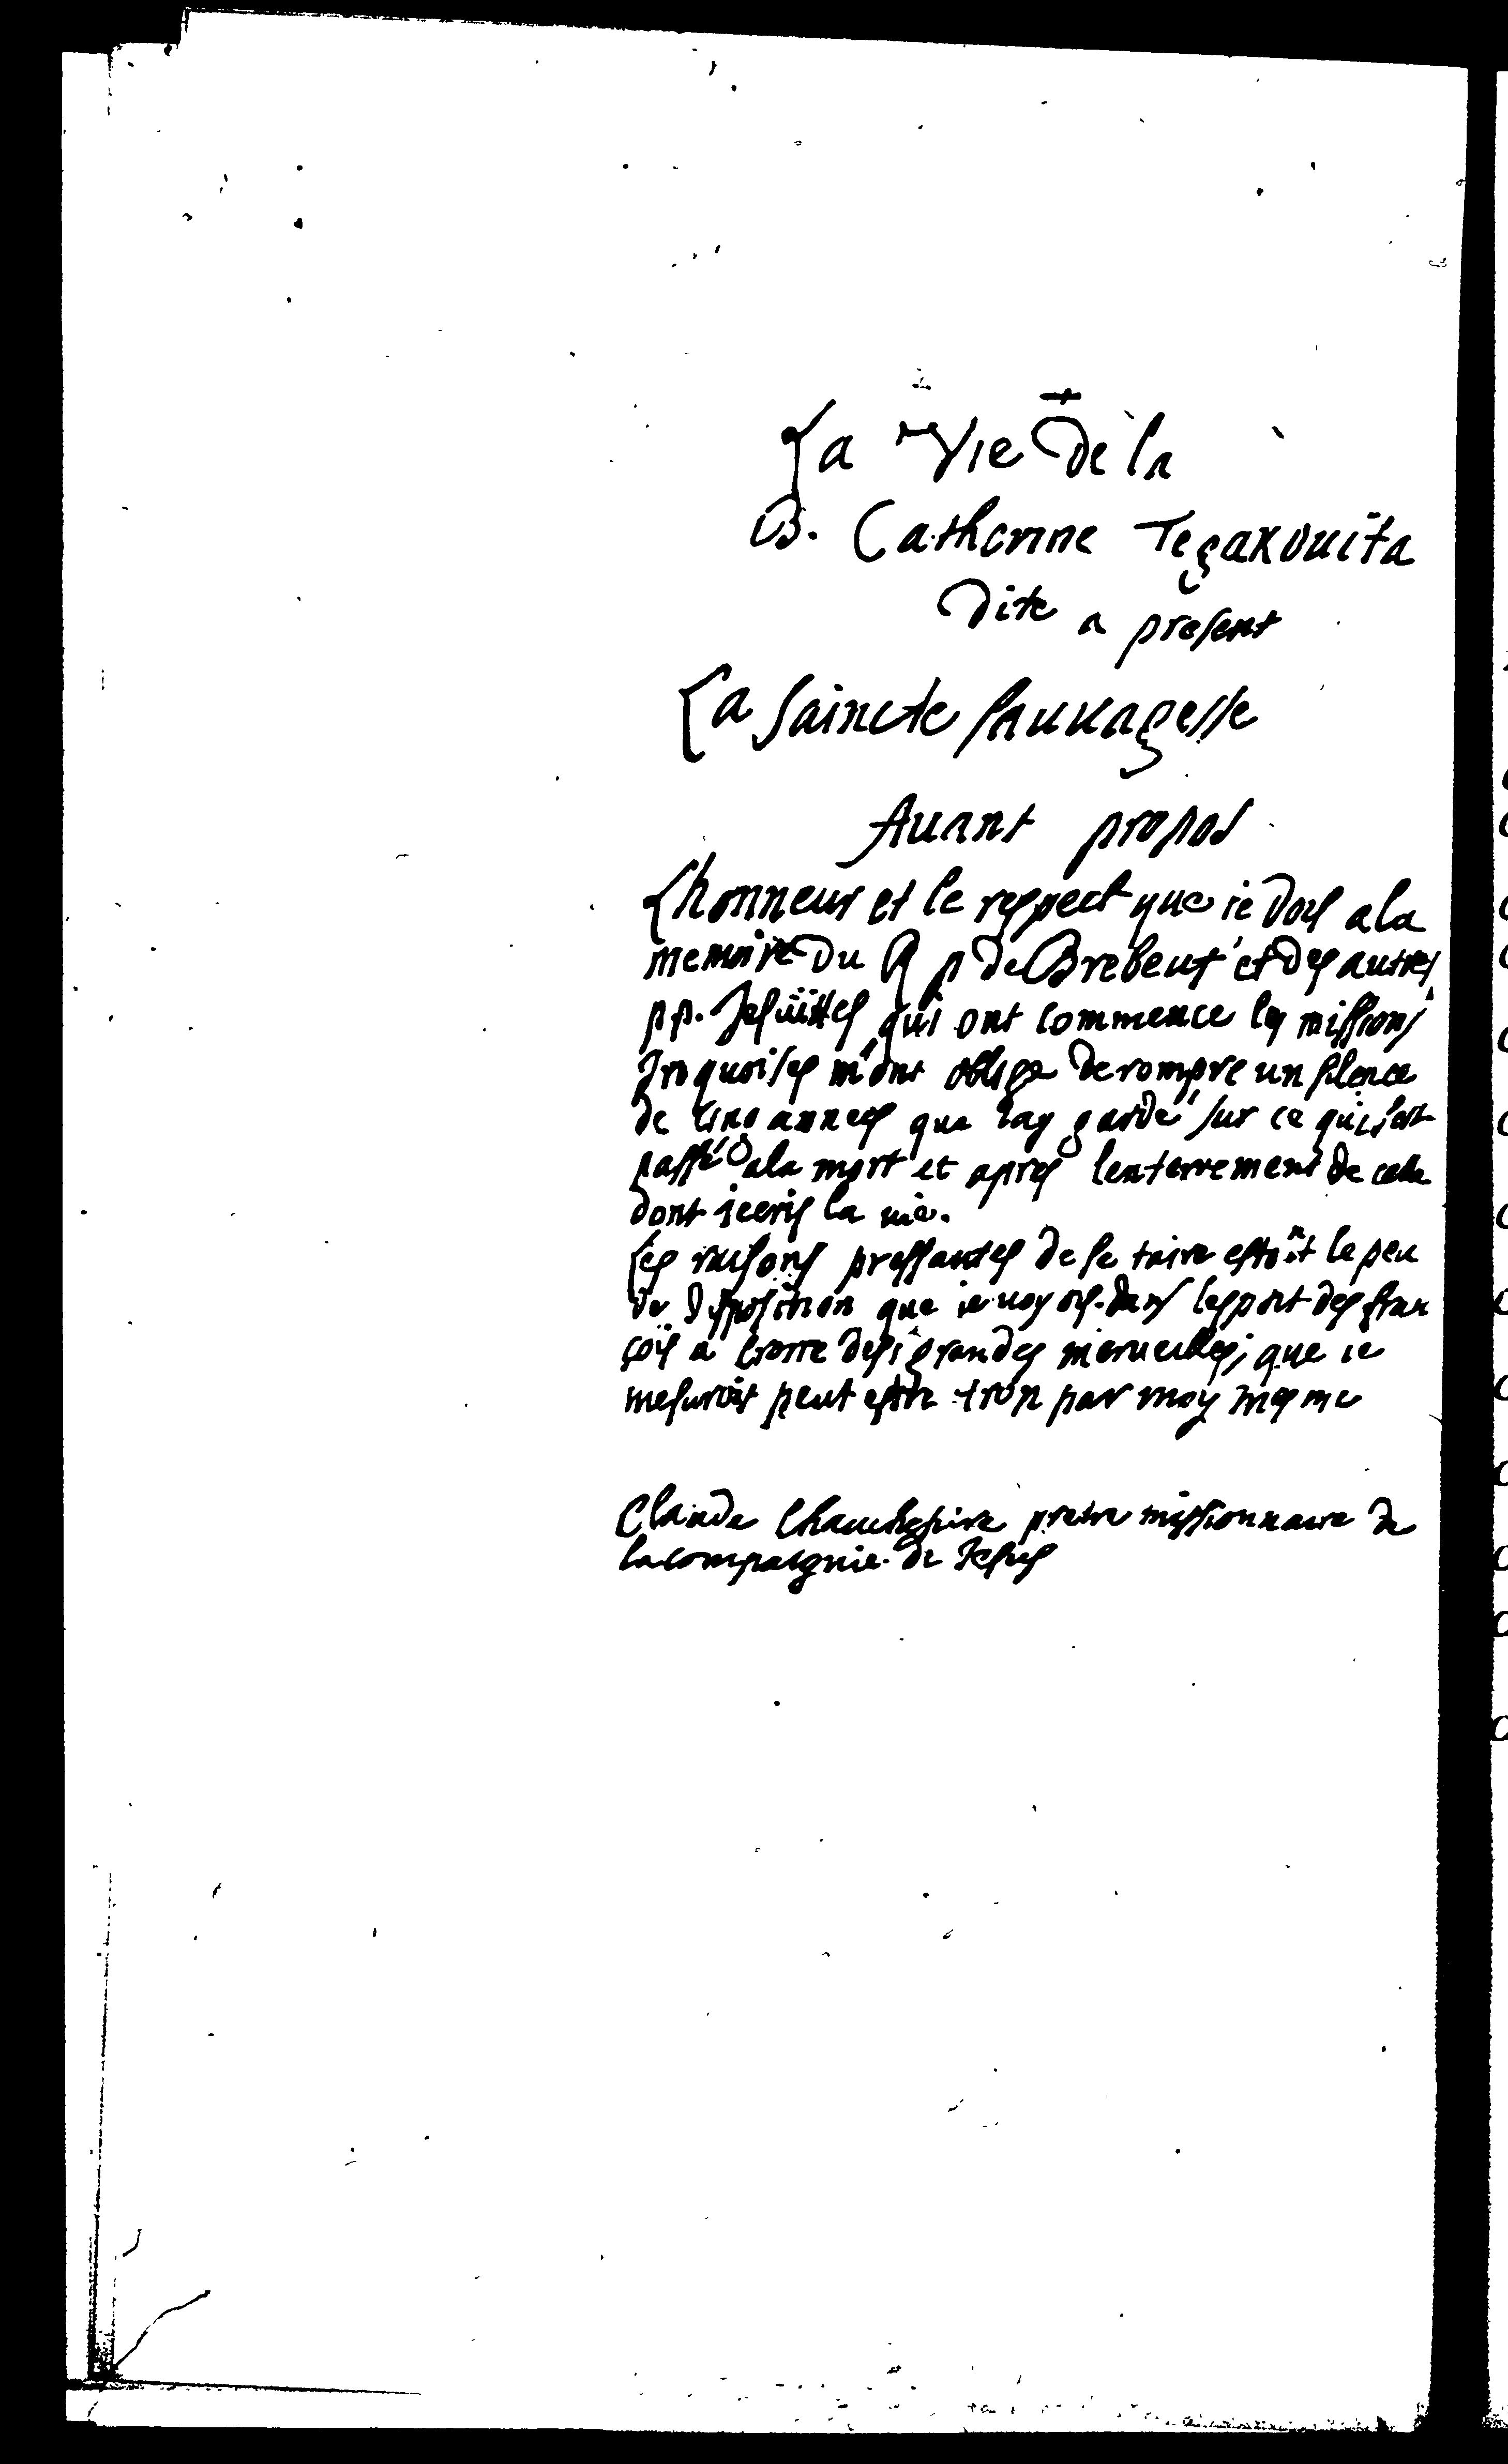 +
La Vie de la
B. Catherine Tegakouita
Dite a present
La Saincte Sauuagesse
Auant propos
Lhonneur et le respect que ie dois a la
memoire du R p de Brebeuf et des autres
pp. Jesuittes qui ont commence les missions
Iroquoises m'ont oblige de rompre un silence
de cinq annees que iay gardé sur ce qui s'est
passé a la mort et apres lenterrement de celle
dont iecris la vie.
Les raisons pressantes de se taire estoint le peu
de disposition que ie voyois dans lesprit des fran
çois a croire de si grandes merueilles, que ie
mesurois peut estre trop par moy mesme
Claude Chauchetire pretre missionnaire de
la compagnie de Jesus